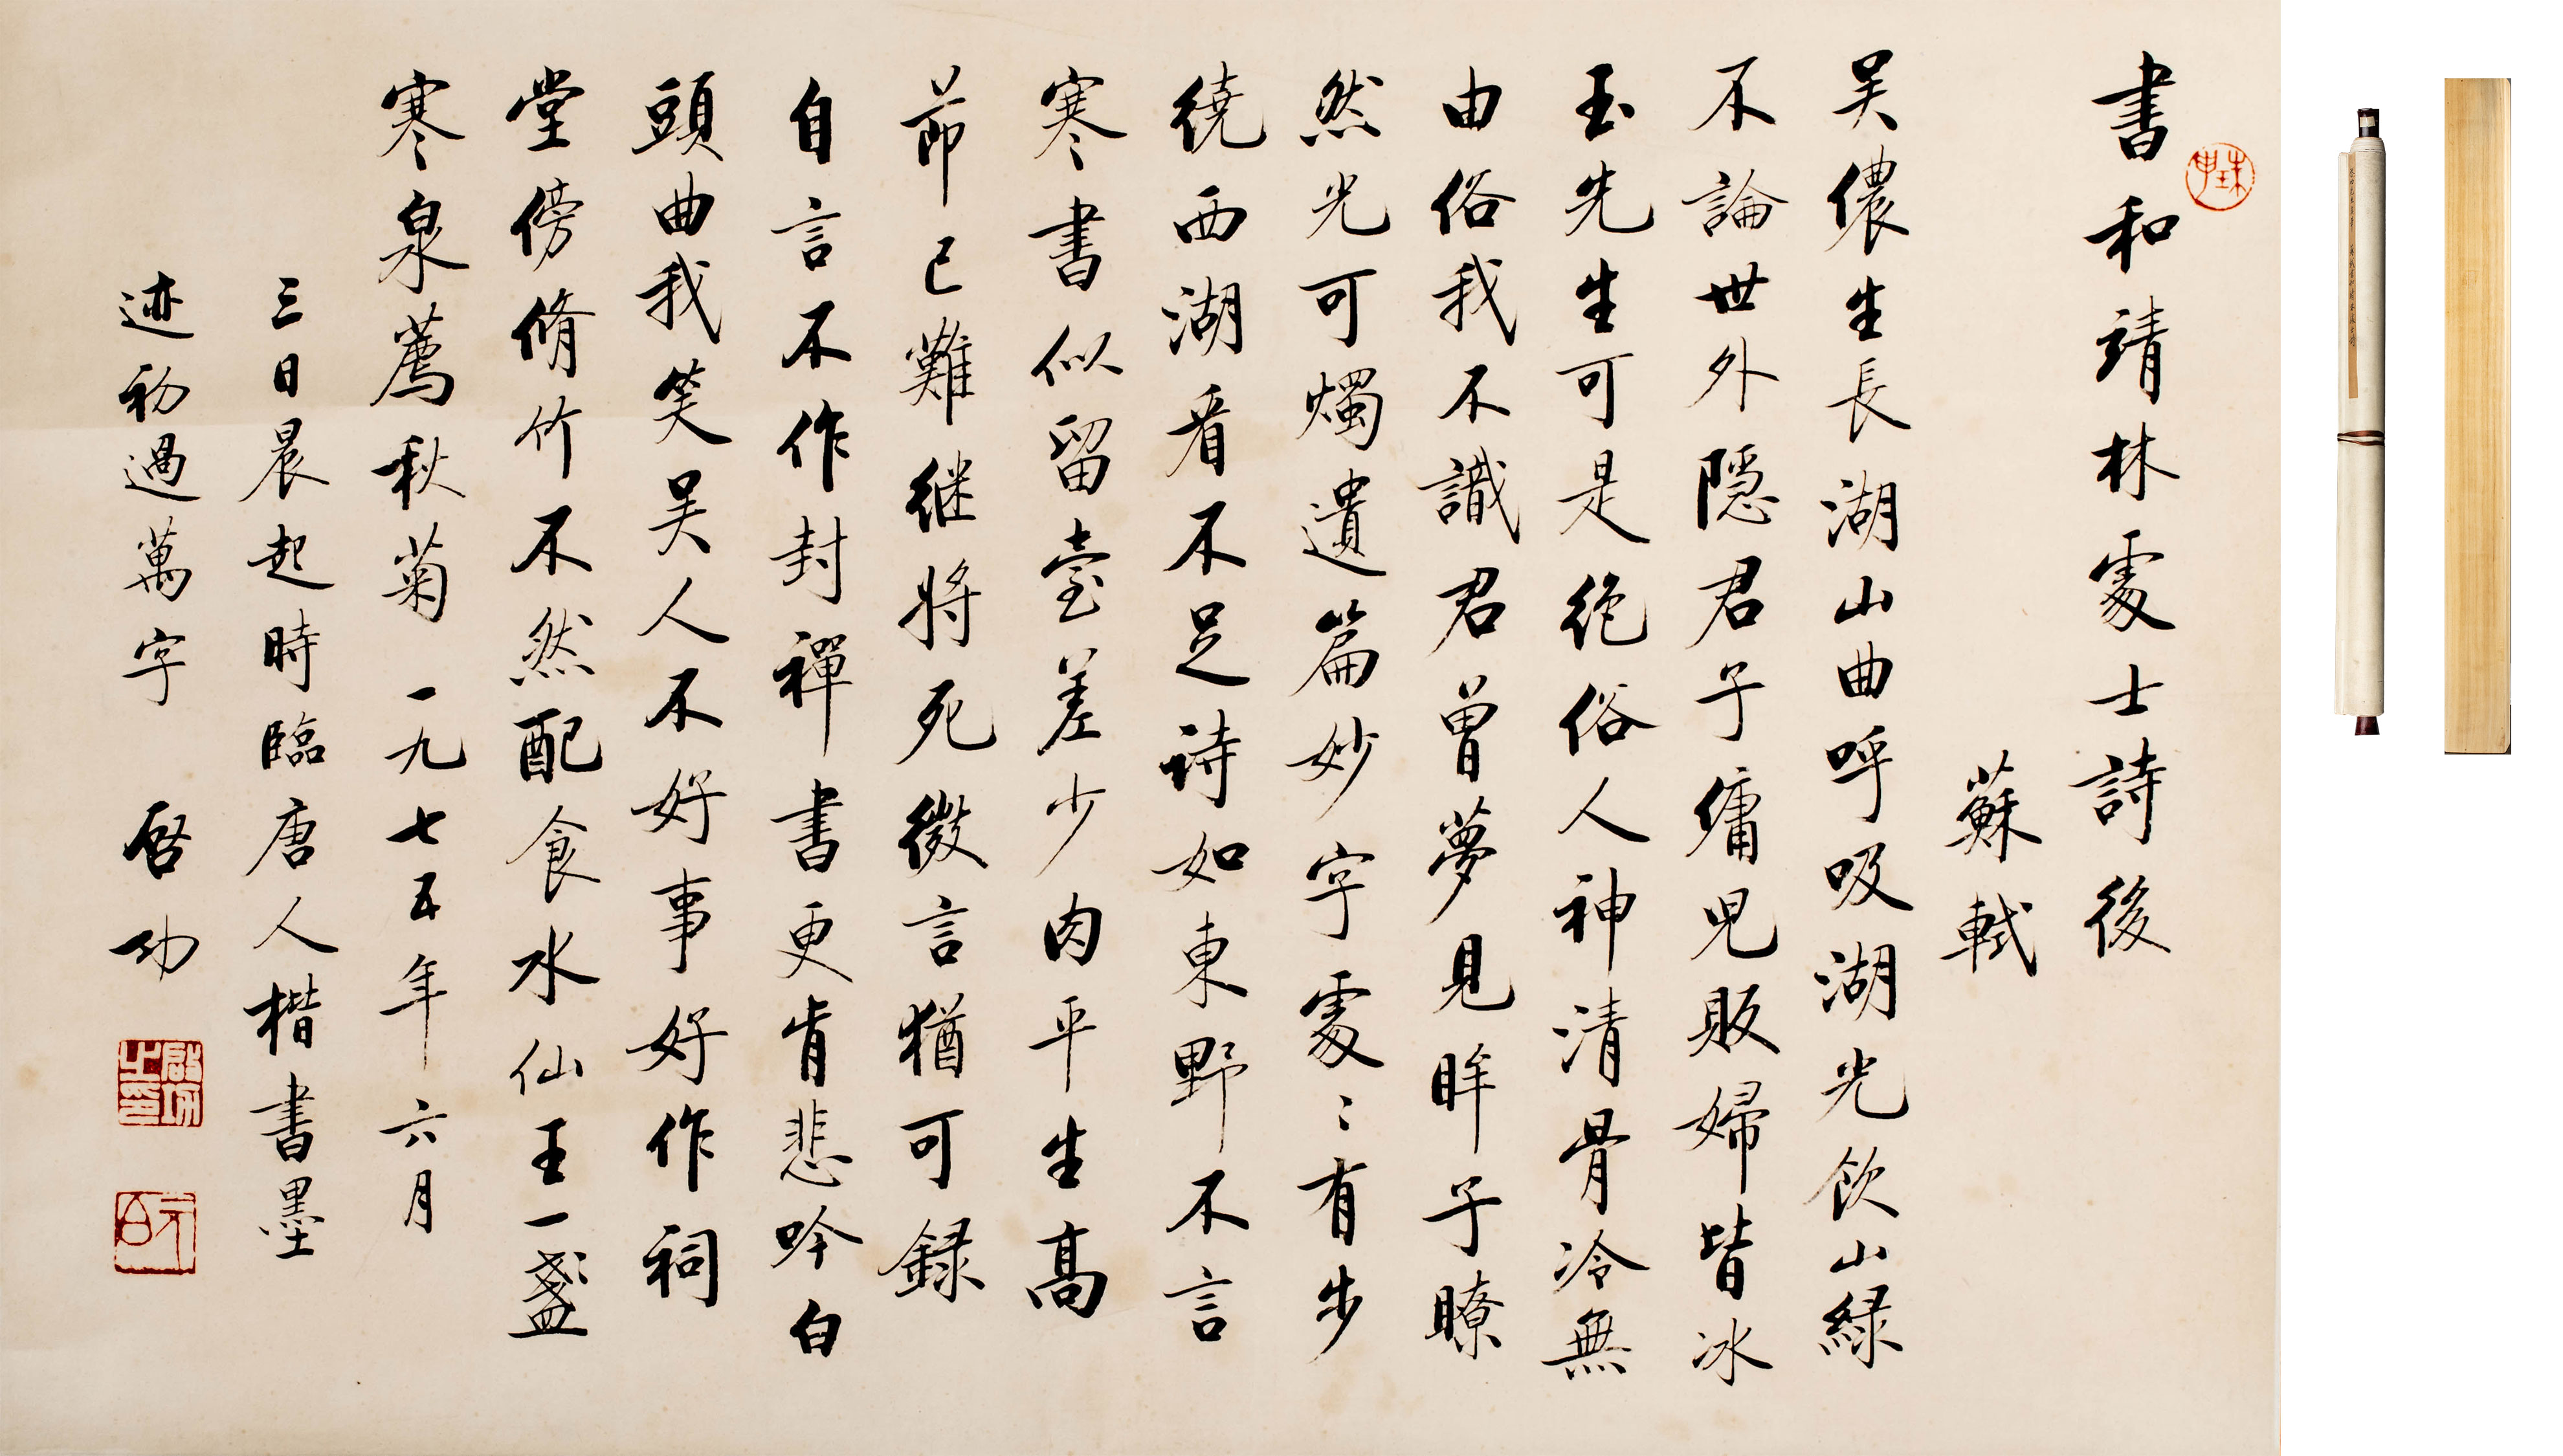 書和靖林處士詩後
蘇軾
吴儂生長湖山曲呼吸湖光飲山緑
不論世外隱君子傭兒販婦皆冰
玉先生可是絶俗人神清骨冷無
由俗我不識君曾夢見眸子瞭
然光可燭遺篇妙字處〻有步
繞西湖看不足詩如東野不言
寒書似留臺差少肉平生高
節已難继將死微言猶可録
自言不作封禪書更肯悲吟白
頭曲我笑吴人不好事好作祠
堂傍脩竹不然配食水仙王一盞
寒泉薦秋菊 一九七五年六月
三日晨起時臨唐人楷書墨
迹初過萬字 啓功